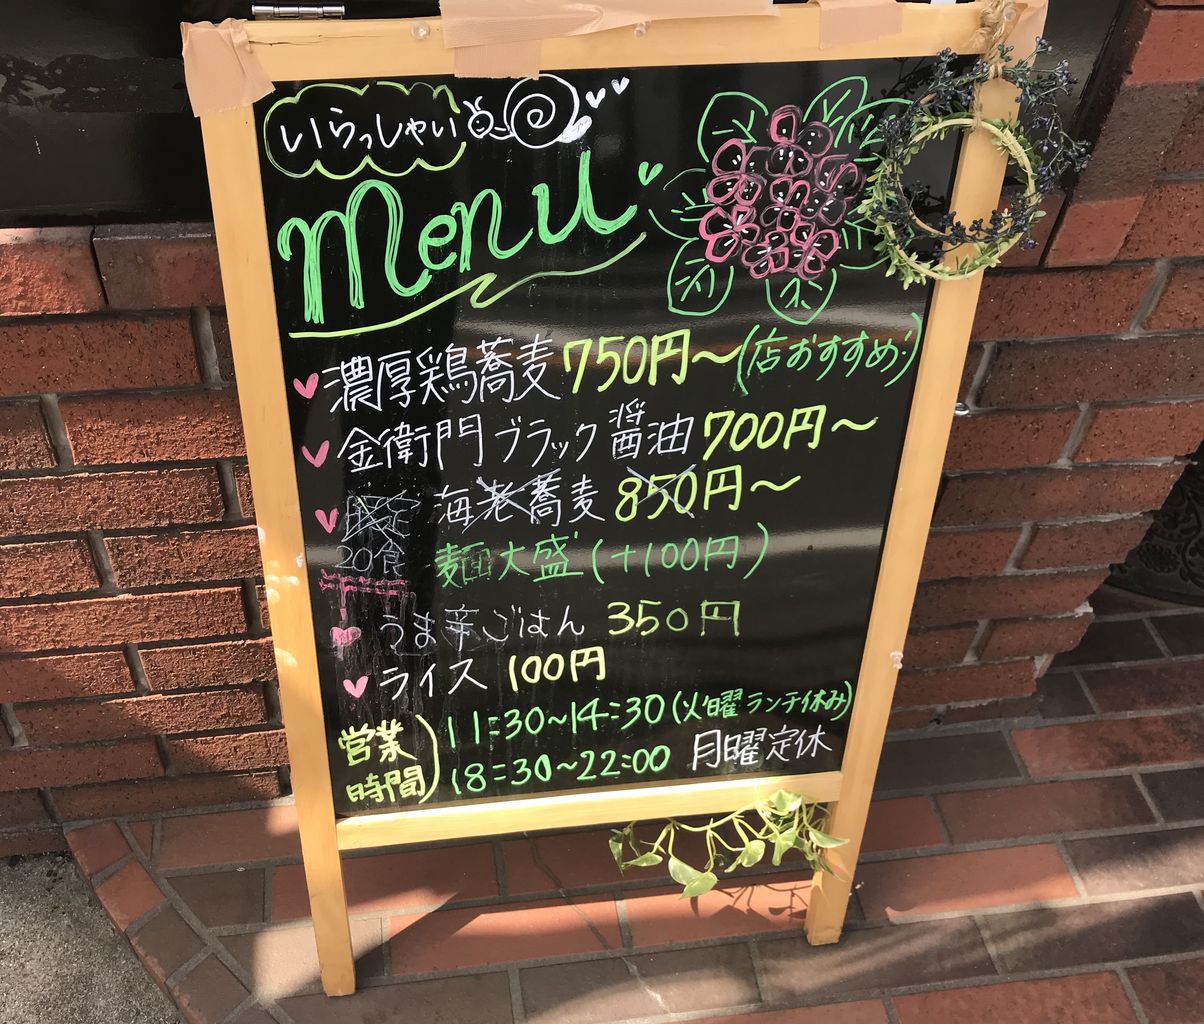 いらっしゃい
menu
濃厚鶏蕎麦 750円〜(店おすすめ!)
金衛門ブラック醤油 700円〜
限定 海老蕎麦 850円〜
20食 麺大盛(+100円)
うま辛ごはん 350円
ライス 100円
営業時間) 11:30〜14:30(火曜ランチ休み)
18:30〜22:00 月曜定休